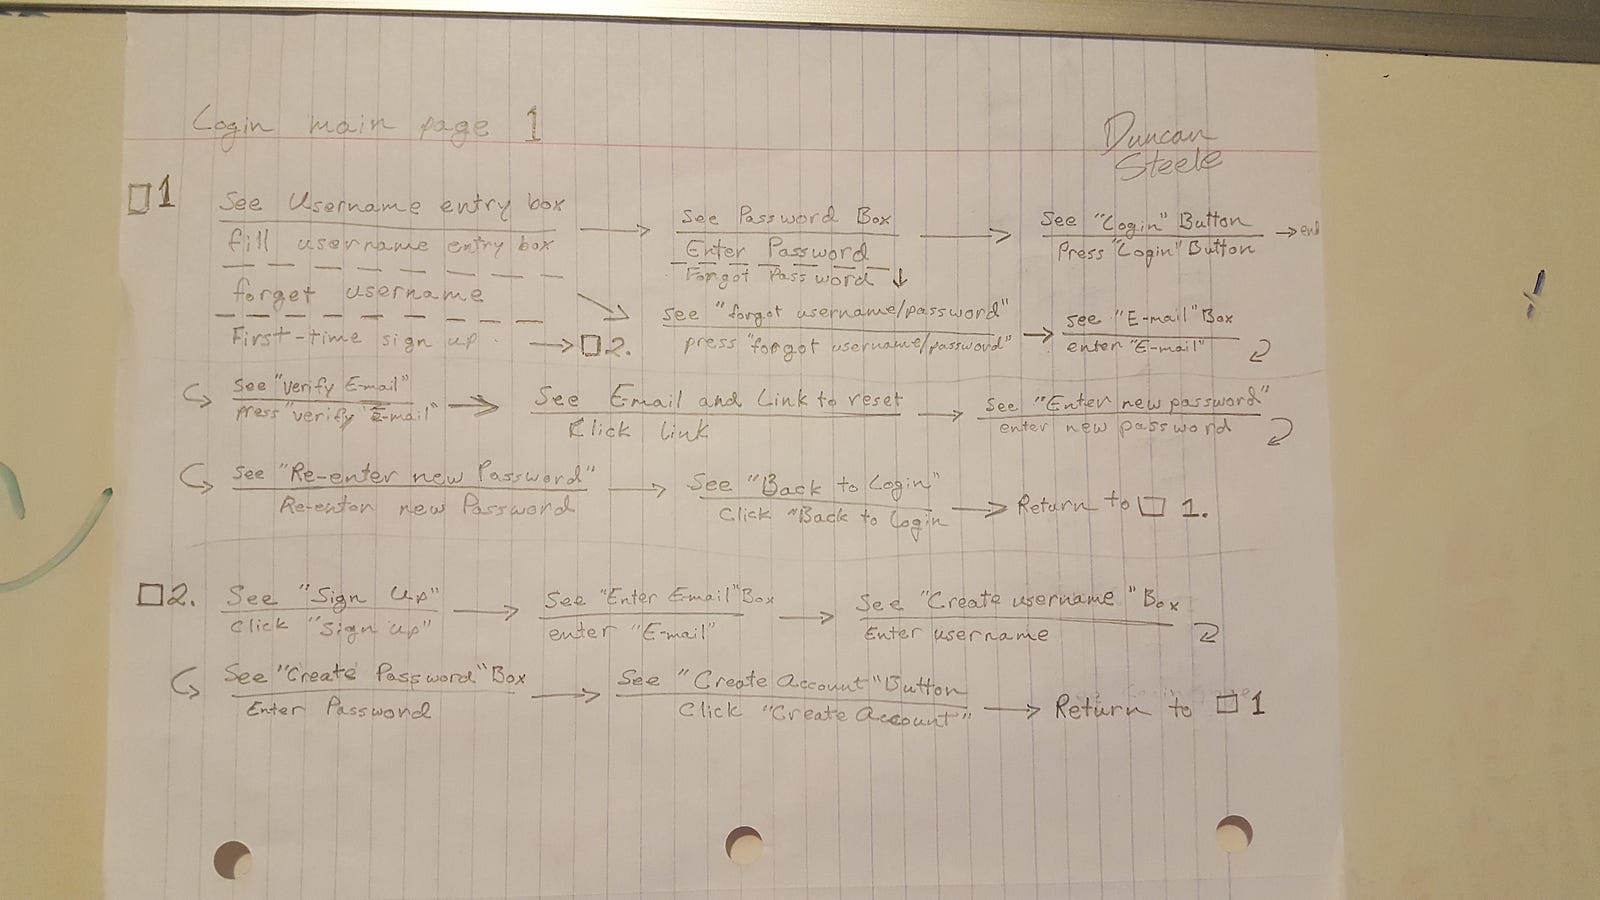 Login main page 1
Duncan
Steele
□1
See Username entry box
fill username entry box
forget username
First-time sign up → □2.
See Password Box
Enter Password
Forgot Password ↓
See "Login" Button → end
Press "Login" Button
see "forgot username/password"
press "forgot username/password"
see "E-mail" Box
enter "E-mail"
see "verify E-mail"
press "verify E-mail"
See E-mail and Link to reset
Click link
See "Enter new password"
enter new password
see "Re-enter new Password"
Re-enter new Password
See "Back to Login"
Click "Back to Login
→ Return to □ 1.
□2.
See "Sign Up"
Click "Sign up"
See "Enter Email" Box
enter "E-mail"
See "Create username" Box
Enter username
See "Create Password" Box
Enter Password
See "Create Account" Button
Click "Create Account"
→ Return to □ 1